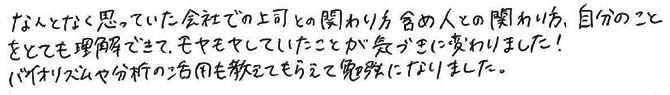 なんとなく思っていた会社での上司との関わり方含め人との関わり方、自分のこと
をとても理解できて、モヤモヤしていたことが気づきに変わりました!
バイオリズムや分析の活用も教えてもらえて勉強になりました。